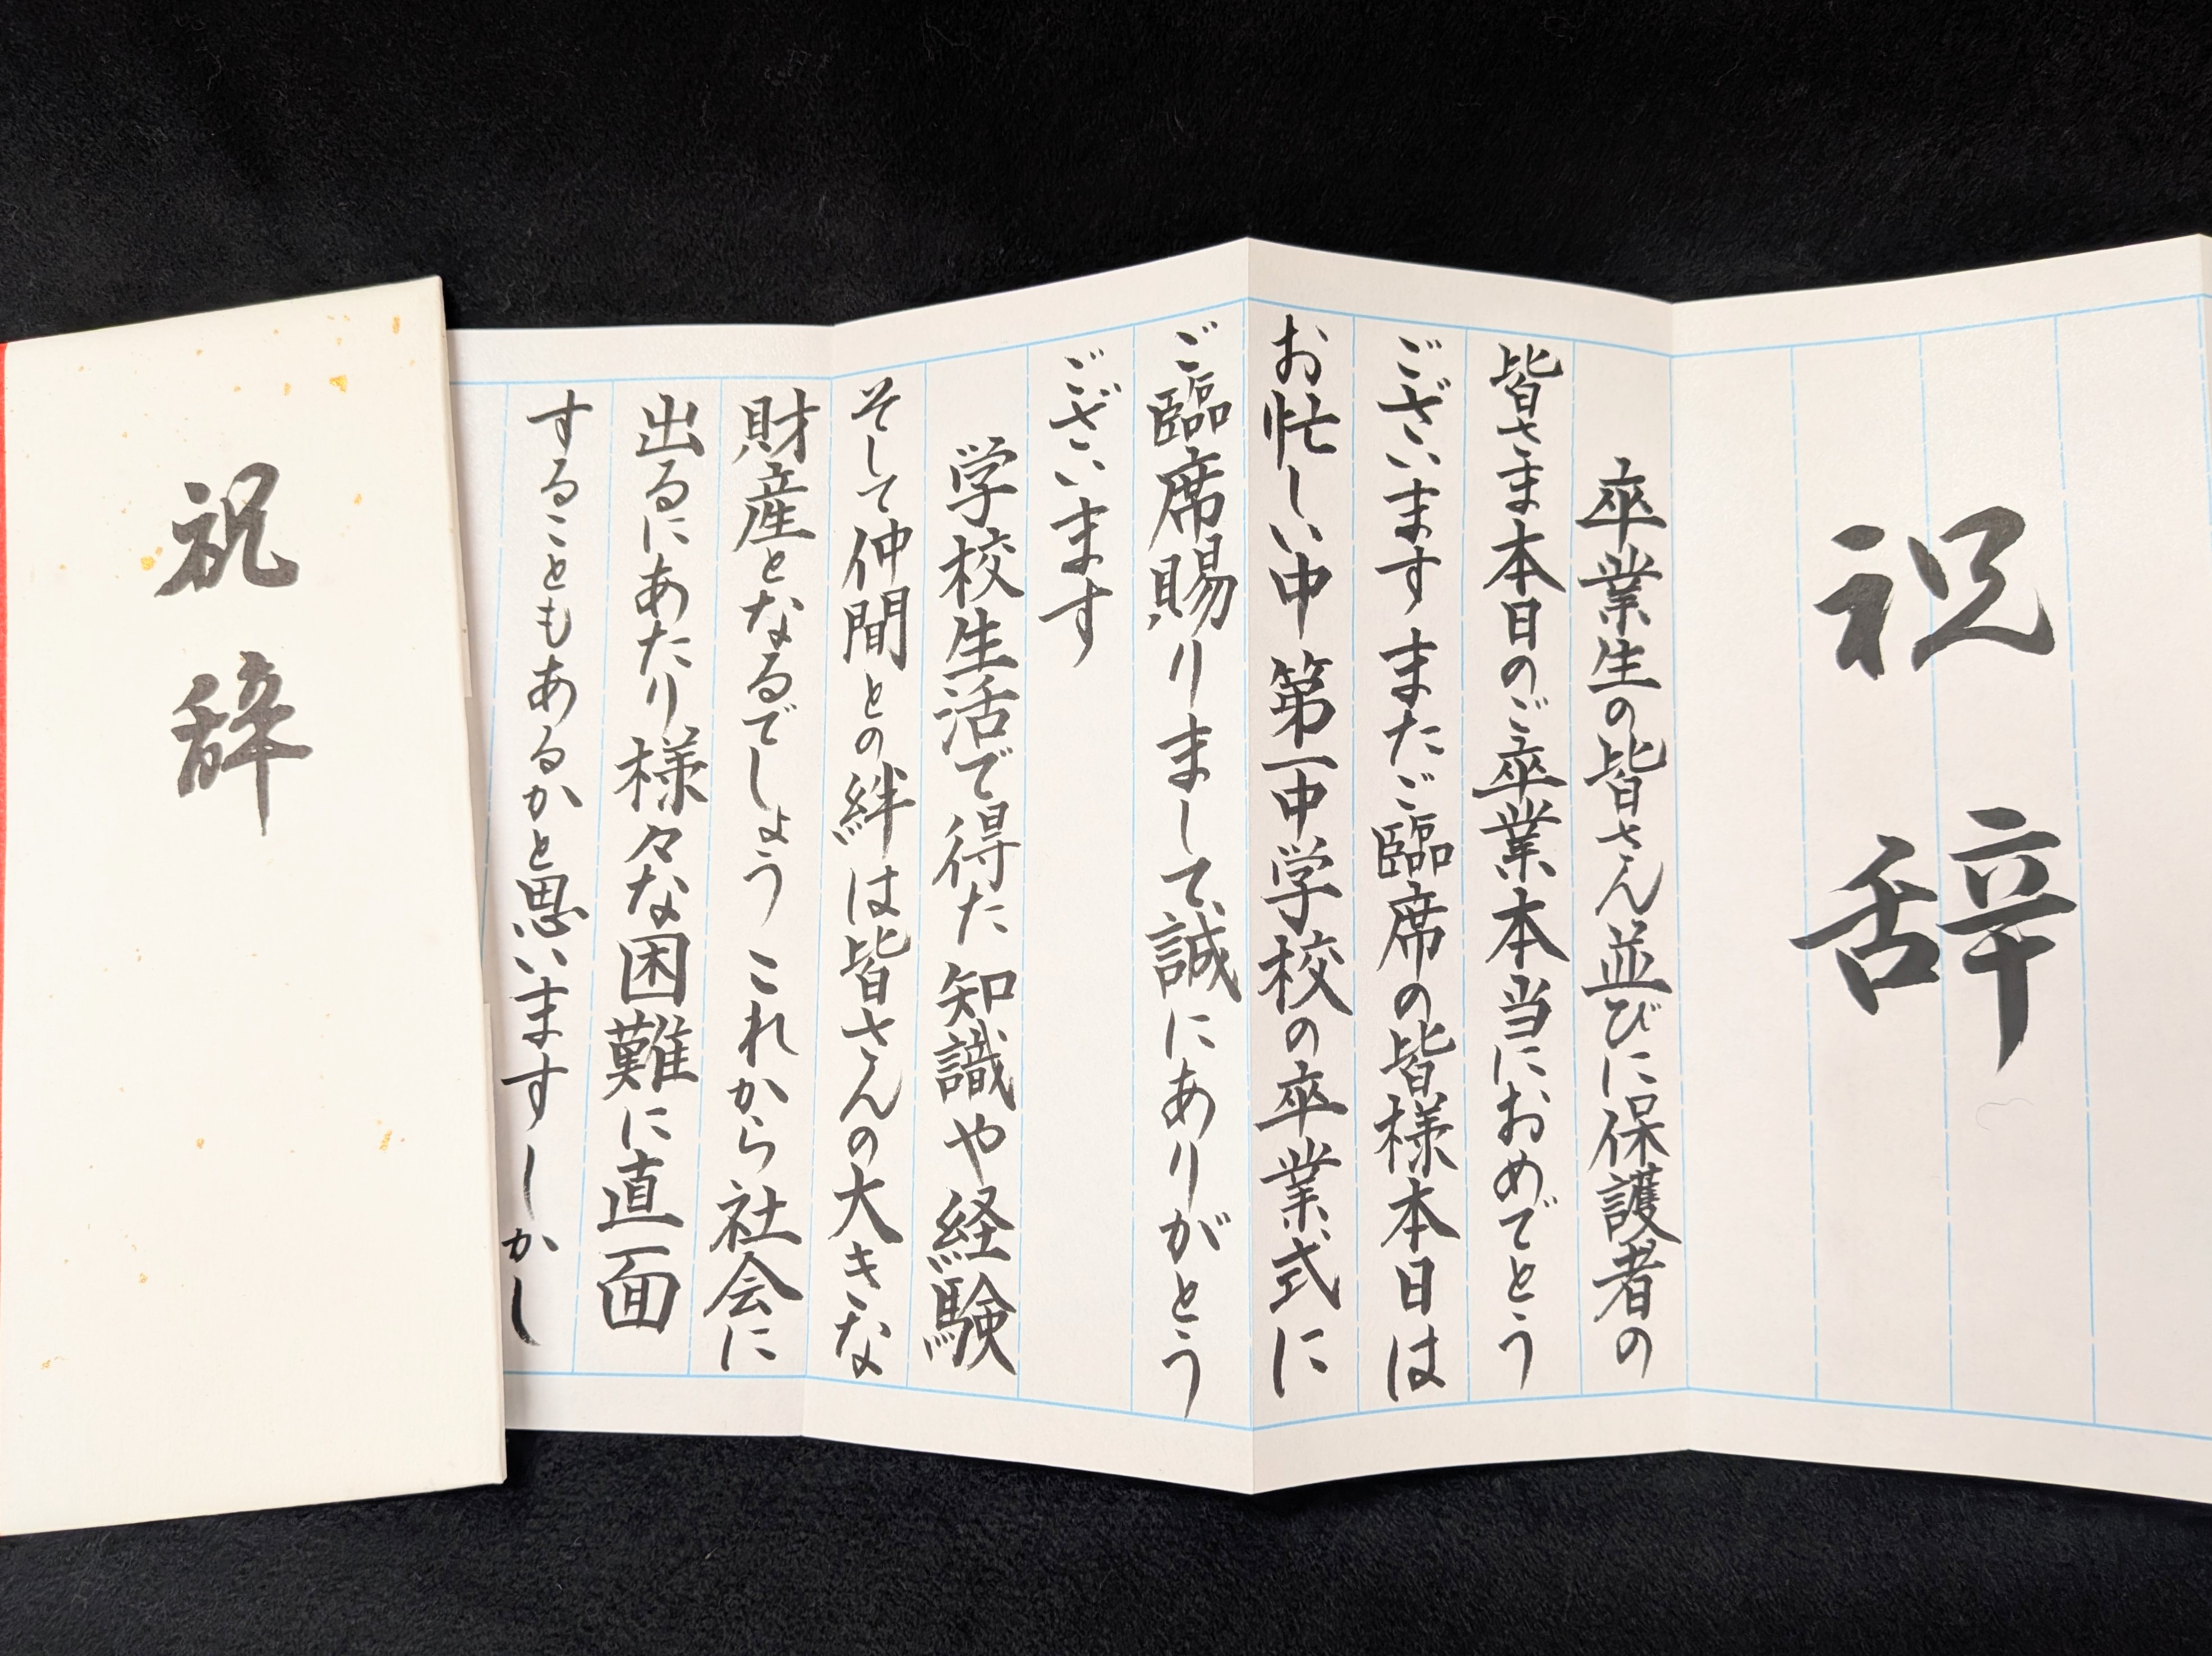 祝辞
卒業生の皆さん並びに保護者の
皆さま本日のご卒業本当におめでとう
ございます またご臨席の皆様本日は
お忙しい中 第一中学校の卒業式に
ご臨席賜りまして誠にありがとう
ございます
学校生活で得た 知識や経験
そして仲間との絆は皆さんの大きな
財産となるでしょう これから社会に
出るにあたり様々な困難に直面
することもあるかと思います しかし
祝辞